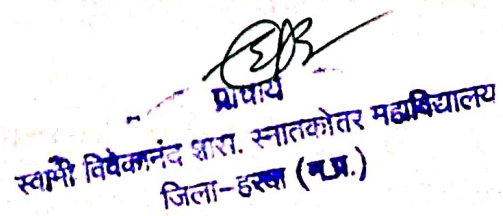 प्राचार्य
स्वामी विवेकानंद शास. स्नातकोतर महाविद्यालय
जिला-हरदा (म.प्र.)